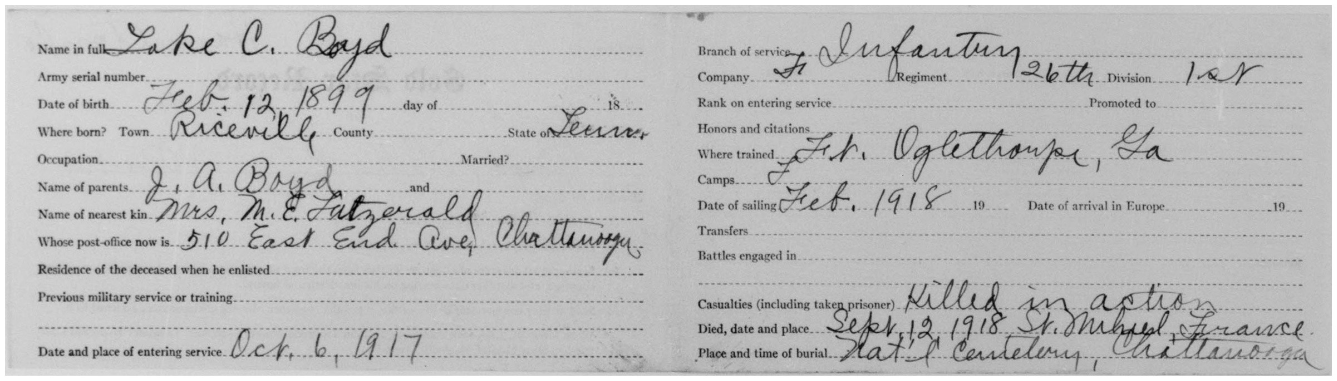 Name in full Lake C. Boyd
Army serial number
Date of birth Feb. 12, 1899 day of 18
Where born? Town Riceville County State of Tenn.
Occupation Married?
Name of parents J. A. Boyd and
Name of nearest kin Mrs. M. E. Fatzerald
Whose post-office now is 510 East End Ave, Chattanooga
Residence of the deceased when he enlisted
Previous military service or training
Date and place of entering service Oct. 6, 1917
Branch of service Infantry
Company F Regiment 26th Division 1st
Rank on entering service Promoted to
Honors and citations
Where trained Ft. Oglethorpe, Ga
Camps
Date of sailing Feb. 1918 19 Date of arrival in Europe 19
Transfers
Battles engaged in
Casualties (including taken prisoner) Killed in action
Died, date and place Sept. 12, 1918 St. Mihael, France
Place and time of burial Nat'l Cemetery, Chattanooga